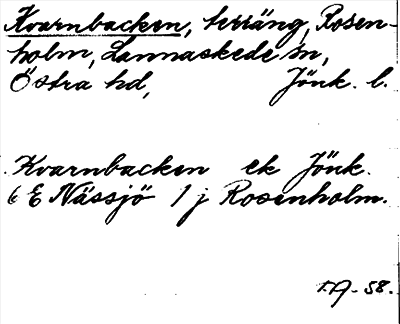 Kvarnbacken, terräng, Rosen-
holm, Lannaskede sn,
Östra hd, Jönk. l.
Kvarnbacken ek Jönk.
6 E Nässjö 1 j Rosenholm.
-58.